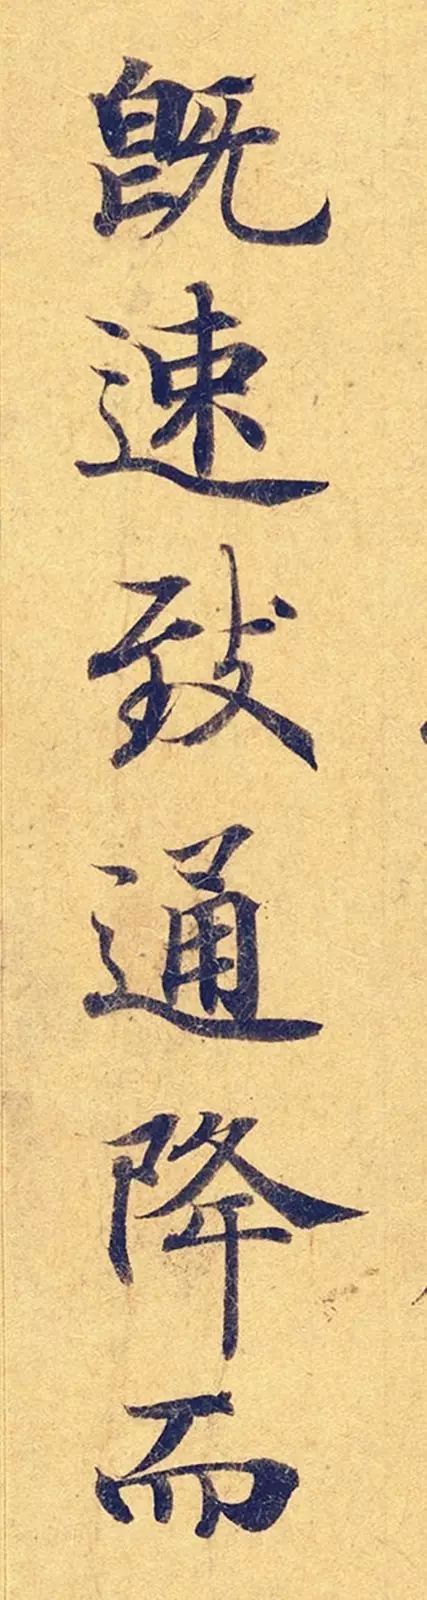 既速致通降而